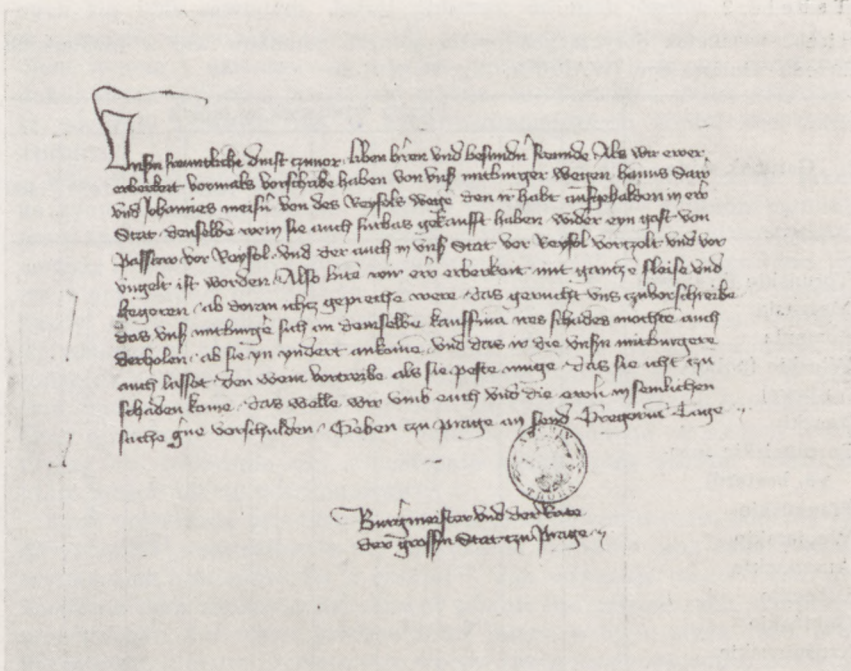 Unsn freuntliche dinst czuuor liben hren vnd besundn frunde Als wir ewer
erberkeit vormals vorschribe haben von vnsn mitburger wegen hannus
vnd Johannes von des Reyfols wege den ir habt aufgehalden in ewr
Stat denselbe wein sie auch furbas gekaufft haben wider eyn gast von
Passaw vor Reyfol vnd der auch in vnsn Stat vor Reyfol vorczolt vnd vor
vngelt ist worden Also bite wir ewr erberkeit mit gancze fleise vnd
begeren ab doran ichcz gepreche were das geruchet vns czuvorschreibe
das vnsn mitburge sich an demselbe kauffma irs schades mochte auch
derholen ab sie yn yndert ankome vnd das ir die vnsn mitburgere
auch lasset den wein vortreibe als sie peste muge das sie icht czu
schaden kome das welle wir vmb euch vnd die ewrn in semlichen
sache gne vorschulden Geben czu Prage an send Gregorius Tage
THORN
Burgmeister vnd der Rate
der grossn Stat czu Prage